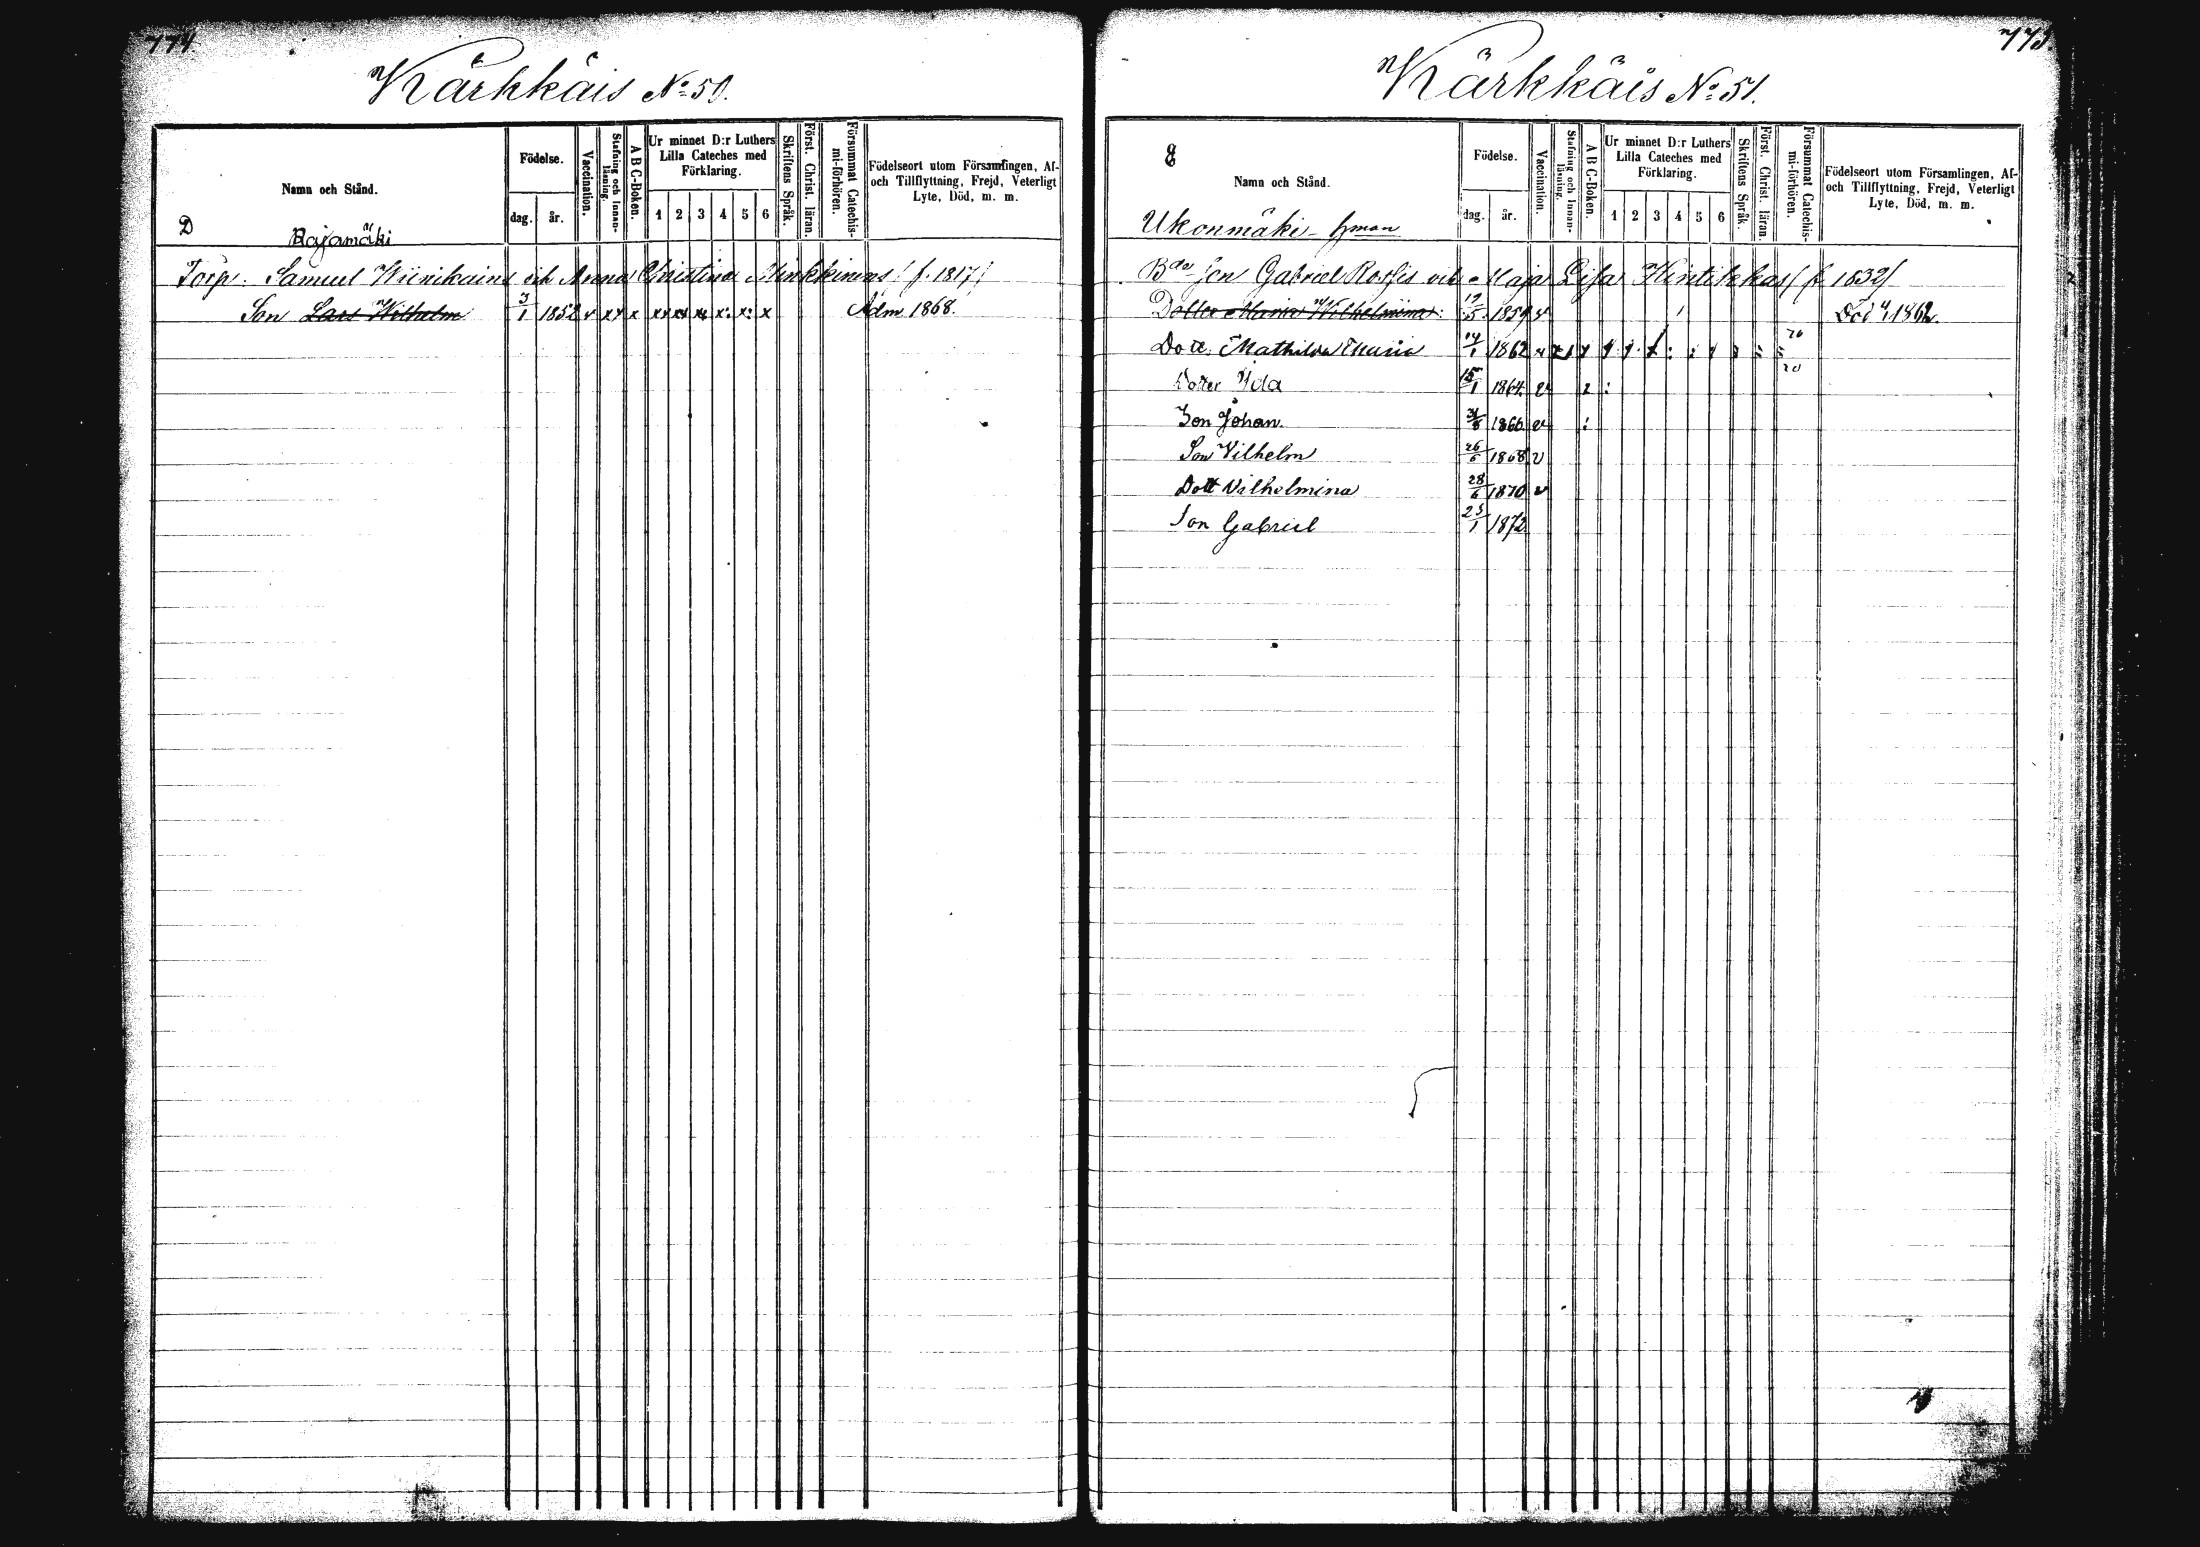 774.
Kärkkäis No 50.
Namn och Stånd.
Födelse.
dag.
år.
Vaccination.
Stafning och Innan-
läsning.
A B C-Boken.
Ur minnet D:r Luthers
Lilla Cateches med
Förklaring.
1 2 3 4 5 6
Skriftens Språk.
Först. Christ. läran.
Försummat Catechis-
mi-förhören.
Födelseort utom Församlingen, Af-
och Tillflyttning, Frejd, Veterligt
Lyte, Död, m. m.
D
Rajamäki
Torp. Samuel Wiinikain och Anna Christina Minkkinens (f. 1817)
Son Lars Wilhelm 3/1 1852 v xx x xx xx xx x: x: x Adm 1868.
775.
Kärkkäis No 51.
E
Namn och Stånd.
Födelse.
dag.
år.
Vaccination.
Stafning och Innan-
läsning.
A B C-Boken.
Ur minnet D:r Luthers
Lilla Cateches med
Förklaring.
1 2 3 4 5 6
Skriftens Språk.
Först. Christ. läran.
Försummat Catechis-
mi-förhören.
Födelseort utom Församlingen, Af-
och Tillflyttning, Frejd, Veterligt
Lyte, Död, m. m.
Ukonmäki
Bde Son Gabriel och Maja Lisa Kintikkas (f. 1832)
Dotter Maria Wilhelmina 1859 v Död 1862.
Dott. Mathilda Maria 14/1 1862 v 70
Dotter Ida 15/1 1864 v 20
Son Johan. 1866 v
Son Vilhelm 26/6 1868 v
Dott Vilhelmina 28/6 1870 v
Son Gabriel 25/1 1872